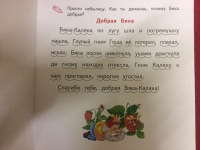 Прочти небылицу. Как ты думаешь, почему Бяка
добрая?
Добрая Бяка
Бяка-Каляка по лугу шла и погремушку
нашла. Глупый гном Гоша её потерял, плакал,
искал. Бяка носом шмыгнула, ушами дрыгнула,
да гному находку отнесла. Гном Каляку к
чаю пригласил, пирогом угостил.
Спасибо тебе, добрая Бяка-Каляка!